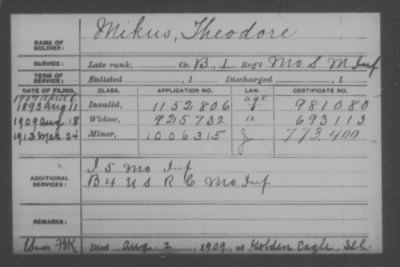 NAME OF SOLDIER: Mikus, Theodore
SERVICE: Late rank, Co. B. 1 Reg't Mo S M Inf
TERM OF SERVICE: Enlisted , 1 Discharged , 1
DATE OF FILING. CLASS. APPLICATION NO. LAW. CERTIFICATE NO.
1893 Aug 11 Invalid, 1152806 age 981080
1909 Aug. 18 Widow, 925732 a 693113
1913 Mar. 24 Minor, 1006315 g 773,400
ADDITIONAL SERVICES: I 5 Mo Inf
B 4 U S R C Mo Inf
REMARKS:
Died Aug 2, 1909, at Golden Eagle, Ill.